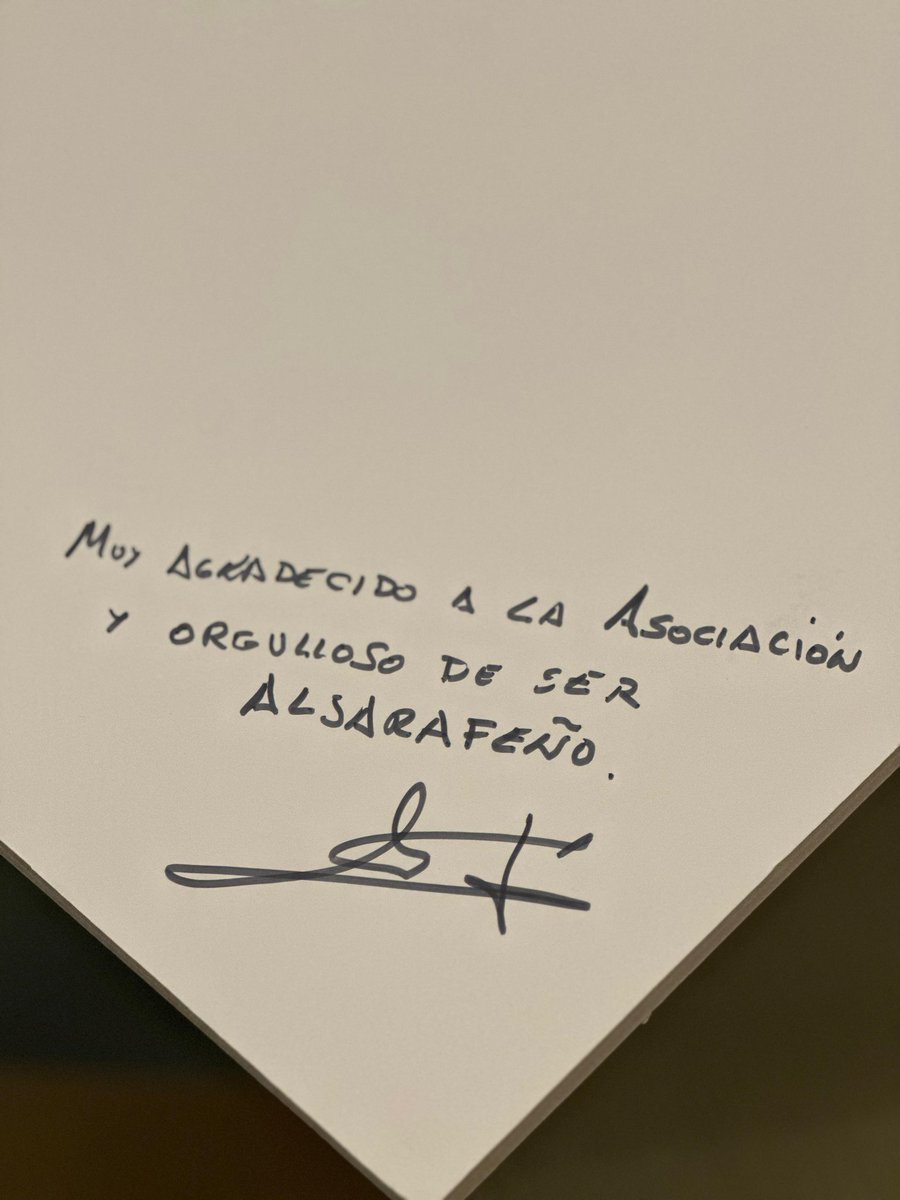 Muy AGRADECIDO A LA ASOCIACIÓN
Y ORGULLOSO DE SER
ALSARAFEÑO.